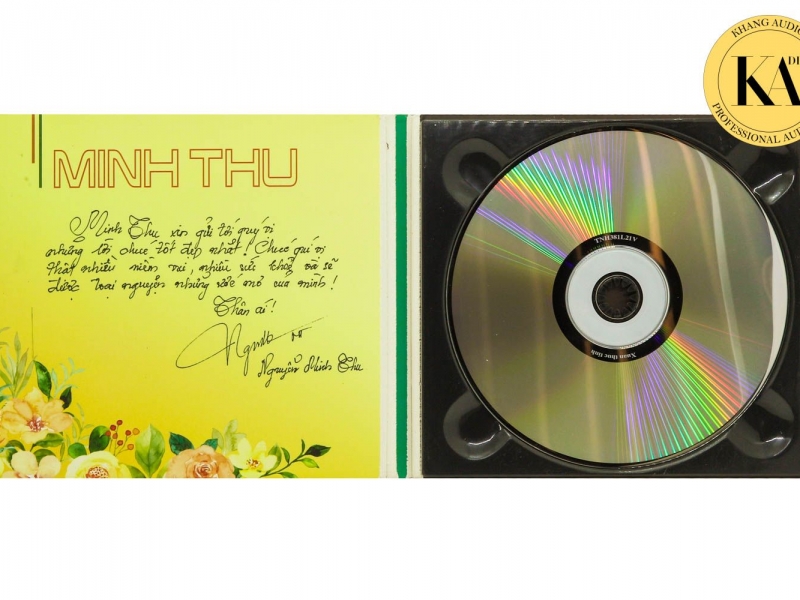 MINH THU
Minh Thu xin gửi tới quý vị
những lời chúc tốt đẹp nhất! Chúc quí vị
thật nhiều niềm vui, nhiều sức khỏe và sẽ
được toại nguyện những ước mơ của mình!
Thân ái!
Nguyễn Minh Thu
TNH381L21V
Xuân thúc tình
KHANG AUDIO
KA
PROFESSIONAL